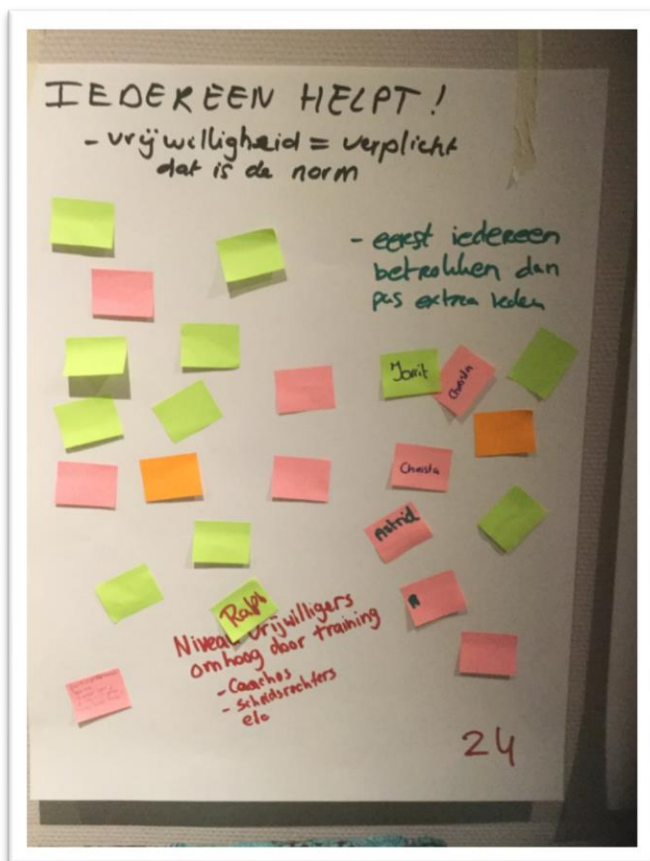 IEDEREEN HELPT!
- vrijwilligheid = verplicht
dat is de norm
- eerst iedereen
betrekken dan
pas extra leden
Jorrit
Christa
Christa
Astrid
R
Ralph
Niveau vrijwilligers
omhoog door training
- Coaches
- Scheidsrechters
etc
24